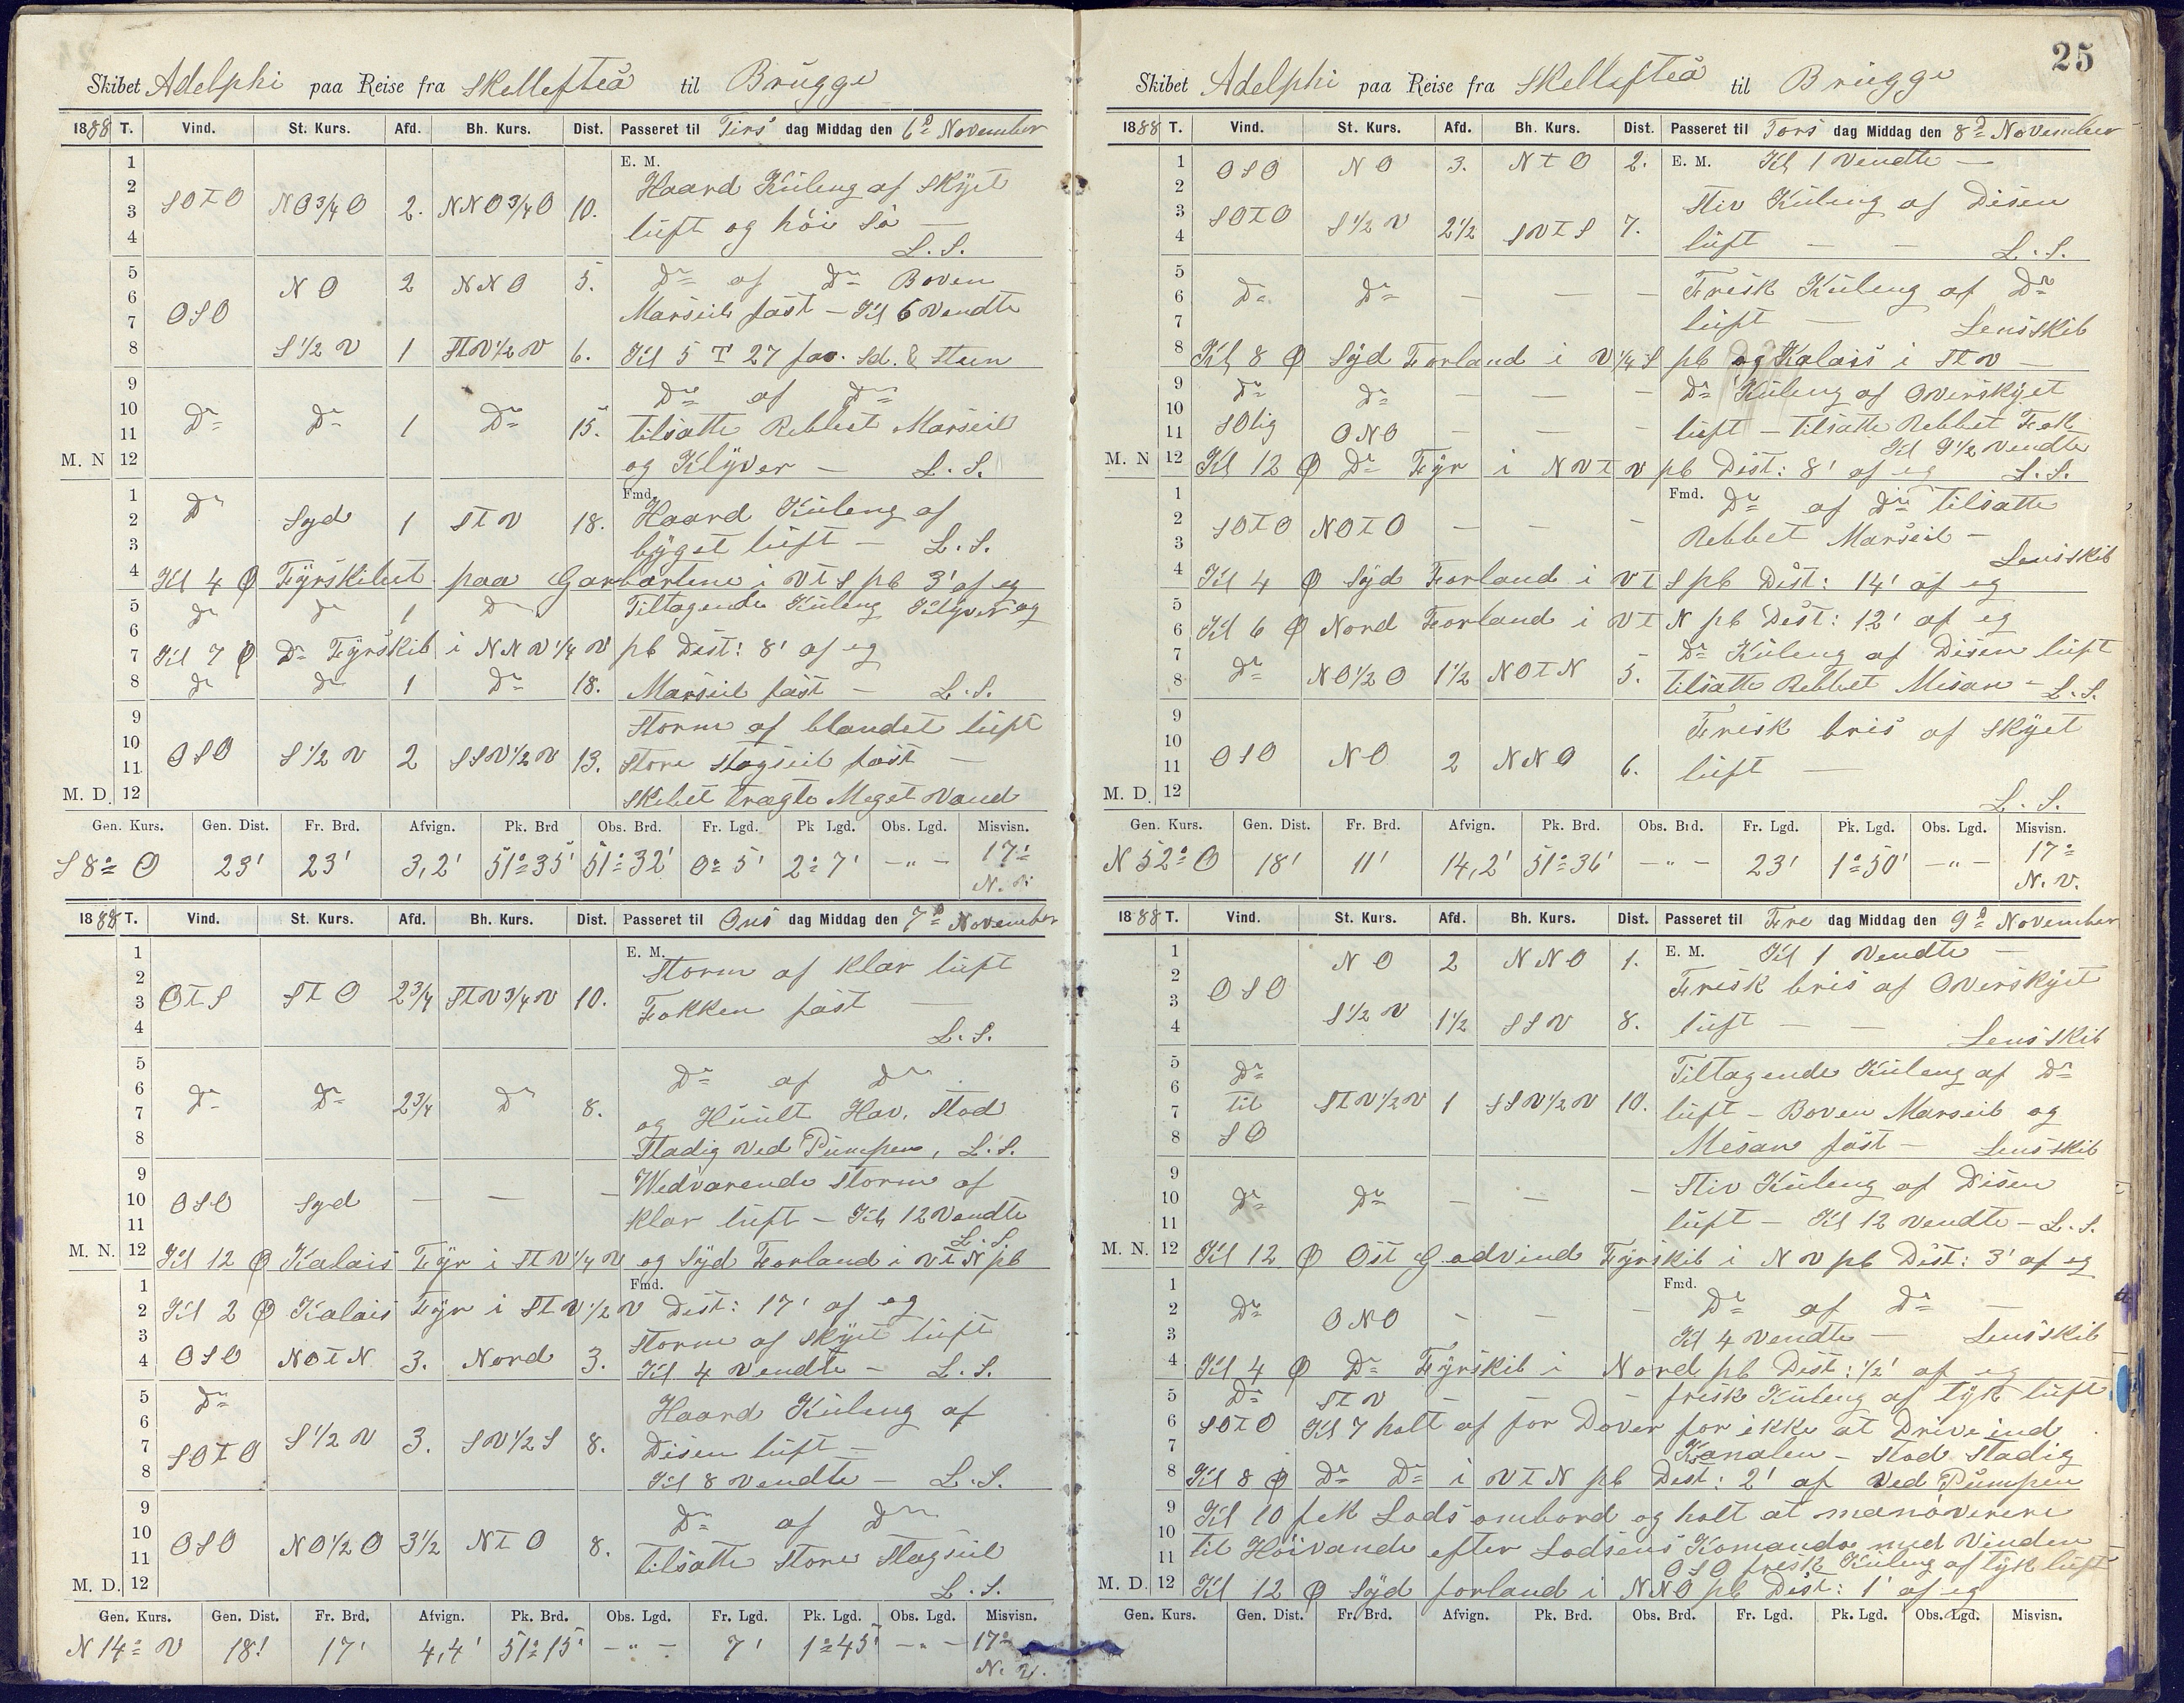 Skibet Adelphi paa Reise fra Skellefteå til Brügge
1888 T. Vind. St. Kurs. Afd. Bh. Kurs. Dist. Passeret til Tirs dag Middag den 6te November
1 E. M.
2 Haard Küleng af Skÿet
3 SOTO NO 3/4 O 2. NNO 3/4 O 10.
4 lüft og höi Sö — L. S.
5 NO 2 NNO 5. Do af Do Boven
6 Marseil fast — Kl 6 Vendte
7 OSO
8 S 1/2 V 1 STV 1/2 V 6. Kl 5 T 27 fav. Sd. & Steen
9 Do af Do
10 Do Do 1 Do 15. tilsatte Rebbet Marseil
11
M. N 12 og Klÿver — L. S.
Fmd.
1 Do Haard Küleng af
2 Syd 1 STV 18.
3 bÿget lüft — L. S.
4 Kl 4 Ø Fÿrskibet paa Garbarlene i VTS pb 3' af eg
5 Do Do 1 Do Tiltagende Küleng Klÿver og
6
7 Kl 7 Ø Do Fÿrskib i NNV 1/4 V pb Dist: 8' af eg
8 Do Do 1 Do 18. Marseil fast — L. S.
9 Storm af blandet lüft
10 OSO S 1/2 V 2 SSV 1/2 V 13. Store Stagseil fast —
11
M. D. 12 Skibet trægte Meget Vand
Gen. Kurs. Gen. Dist. Fr. Brd. Afvign. Pk. Brd Obs. Brd. Fr. Lgd. Pk Lgd. Obs. Lgd. Misvisn.
S 8° O 23' 23' 3,2' 51° 35' 51° 32' 0° 5' 2° 7' — " — 17° N. V.
1888 T. Vind. St. Kurs. Afd. Bh. Kurs. Dist. Passeret til Ons dag Middag den 7de November
1 E. M.
2 Storm af Klar lüft
3 OTS STO 2 3/4 STV 3/4 V 10. Fokken fast —
4 L. S.
5 Do af Do
6 Do Do 2 3/4 Do 8.
7 og Hüült Hav. Stod
8 Stadig Ved Pümpen, L. S.
9 Wedvarende Storm af
10 OSO Syd — — —
11 Klar lüft — Kl 12 Vendte
L. S.
M. N. 12 Kl 12 Ø Kalais Fÿr i STV 1/4 V og Sÿd Forland i VTN pb
1 Fmd.
2 Kl 2 Ø Kalais Fÿr i STV 1/2 V Dist: 17' af eg
3 Storm af Skÿet lüft
4 OSO NOTN 3. Nord 3. Kl 4 Vendte — L. S.
5 Do Haard Küleng af
6 S 1/2 V 3. SV 1/2 S 8.
7 SOTO Disen lüft —
8 Kl 8 Vendte — L. S.
9 Do af Do
10 OSO NO 1/2 O 3 1/2 NTO 8.
11 tilsatte Store Stagseil
M. D. 12 L. S.
Gen. Kurs. Gen. Dist. Fr. Brd. Afvign. Pk. Brd. Obs. Lgd. Fr. Lgd. Pk. Lgd. Obs. Lgd. Misvisn.
N 14° V 18' 17' 4,4' 51° 15' — " — 7' 1° 45' — " — 17° N. V.
25
Skibet Adelphi paa Reise fra Skellefteå til Brügge
1888 T. Vind. St. Kurs. Afd. Bh. Kurs. Dist. Passeret til Tors dag Middag den 8de November
1 OSO NO 3. NTO 2. E. M. Kl 1 Vendte —
2 Stiv Küleng af Disen
3 SOTO S 1/2 V 2 1/2 SVTS 7.
4 lüft — — L. S.
5 Frisk Küleng af Do
6 Do Do — — —
7 lüft — Lensskib
8 Kl 8 Ø Sÿd Forland i V 1/4 S pb og Kalais i STV —
9 Do Do — — — Do Küleng af Overskÿet
10
11 SOlig ONO — — — lüft — tilsatte Rebbet Fok
Kl 9 1/2 Vendte
M. N 12 Kl 12 Ø Do Fÿr i NVTV pb Dist: 8' af eg L. S.
1 Fmd. Do af Do tilsatte
2 SOTO NOTO — — —
3 Rebbet Marseil —
Lensskib
4 Kl 4 Ø Sÿd Forland i VTS pb Dist: 14' af eg
5
6 Kl 6 Ø Nord Forland i VTN pb Dist: 12' af eg
7 Do Küleng af Disen lüft
8 Do NO 1/2 O 1 1/2 NOTN 5. tilsatte Rebbet Mesan — L. S.
9 Frisk bris af Skÿet
10
11 OSO NO 2 NNO 6. lüft —
M. D. 12 L. S.
Gen. Kurs. Gen. Dist. Fr. Brd. Afvign. Pk. Brd. Obs. Brd. Fr. Lgd. Pk. Lgd. Obs. Lgd. Misvisn.
N 52° O 18' 11' 14,2' 51° 36' — " — 23' 1° 50' — " — 17° N. V.
1888 T. Vind. St. Kurs. Afd. Bh. Kurs. Dist. Passeret til Fre dag Middag den 9de November
1 NO 2 NNO 1. E. M. Kl 1 Vendte —
2 Frisk bris af Overskÿet
3 OSO
4 S 1/2 V 1 1/2 SSV 8. lüft — — Lensskib
5 Do Tiltagende Küleng af Do
6
7 til STV 1/2 V 1 SSV 1/2 V 10. lüft — Boven Marseil og
8 SO Mesan fast — Lensskib
9 Stiv Küleng af Disen
10 Do Do — — —
11 lüft — Kl 12 Vendte — L. S.
M. N. 12 Kl 12 Ø Ost Godvind Fÿrskib i NV pb Dist: 3' af eg
1 Fmd.
2 Do ONO — — — Do af Do —
3 Kl 4 Vendte — Lensskib
4 Kl 4 Ø Do Fÿrskib i Nord pb Dist: 1/2' af eg
5 Do STV — — frisk Küleng af tÿk lüft
6 SOTO Kl 7 holt af for Dover for ikke at Drive ind
7 Kanalen — Stod Stadig
8 Kl 8 Ø Do Do i VTN pb Dist: 2' af Ved Pümpen
9 Kl 10 fek Lods ombord og holt at manöverere
10
11 til Höivande efter Lodsens Komando med Vinden
OSO frisk Küleng af tÿk lüft
M. D. 12 Kl 12 Ø Sÿd forland i NNO pb Dist: 1' af eg
Gen. Kurs. Gen. Dist. Fr. Brd. Afvign. Pk. Brd. Obs. Brd. Fr. Lgd. Pk. Lgd. Obs. Lgd. Misvisn.